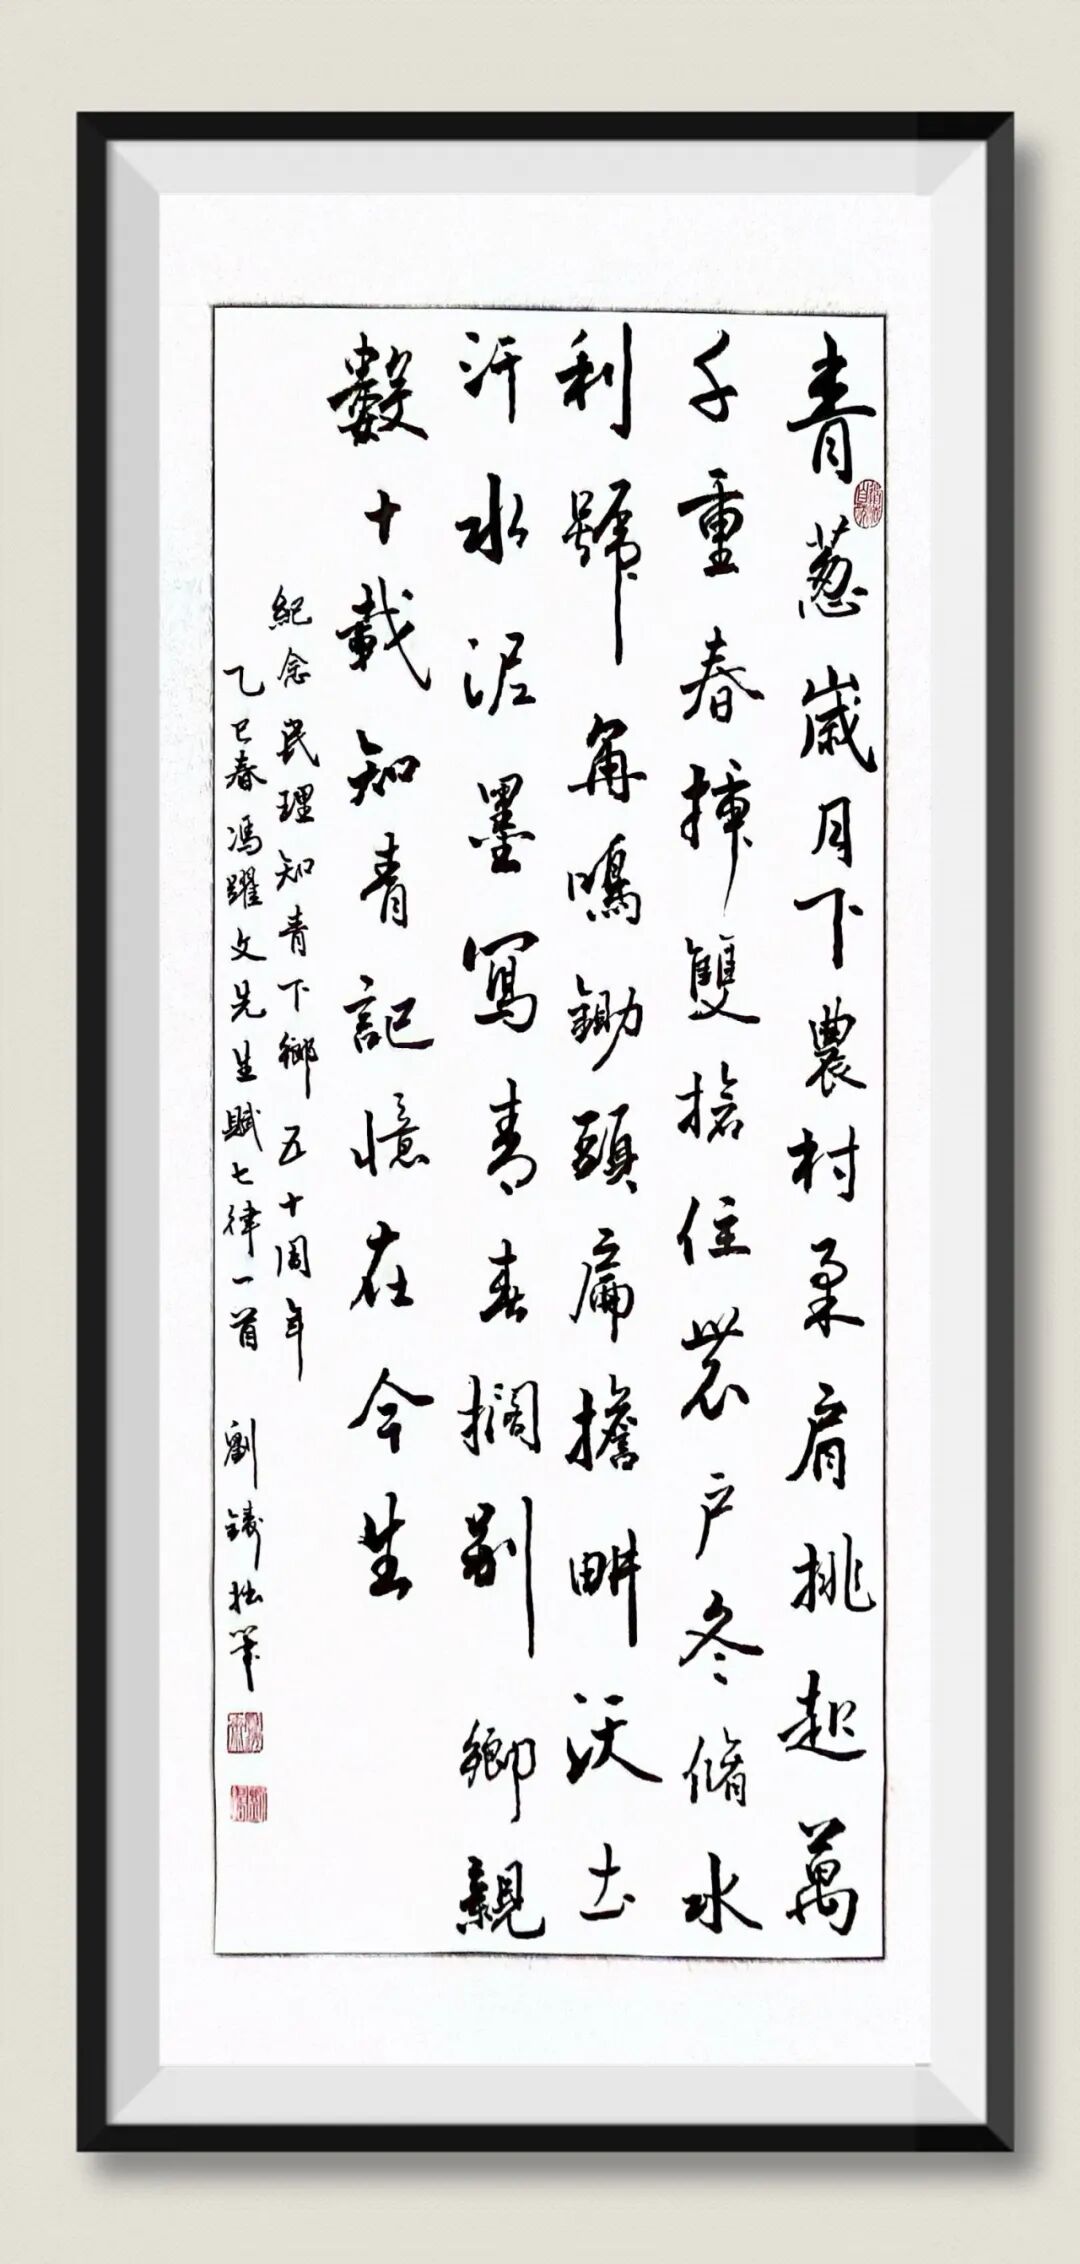 青葱歲月下農村柔肩挑起萬
千重春插雙搶住農户冬脩水
利號角鳴鋤頭扁擔畊沃土
汗水泥墨寫青春擱别鄉親
數十載知青記憶在今生
紀念民理知青下鄉五十周年
乙巳春馮躍文先生賦七律一首 劉鑄拙筆